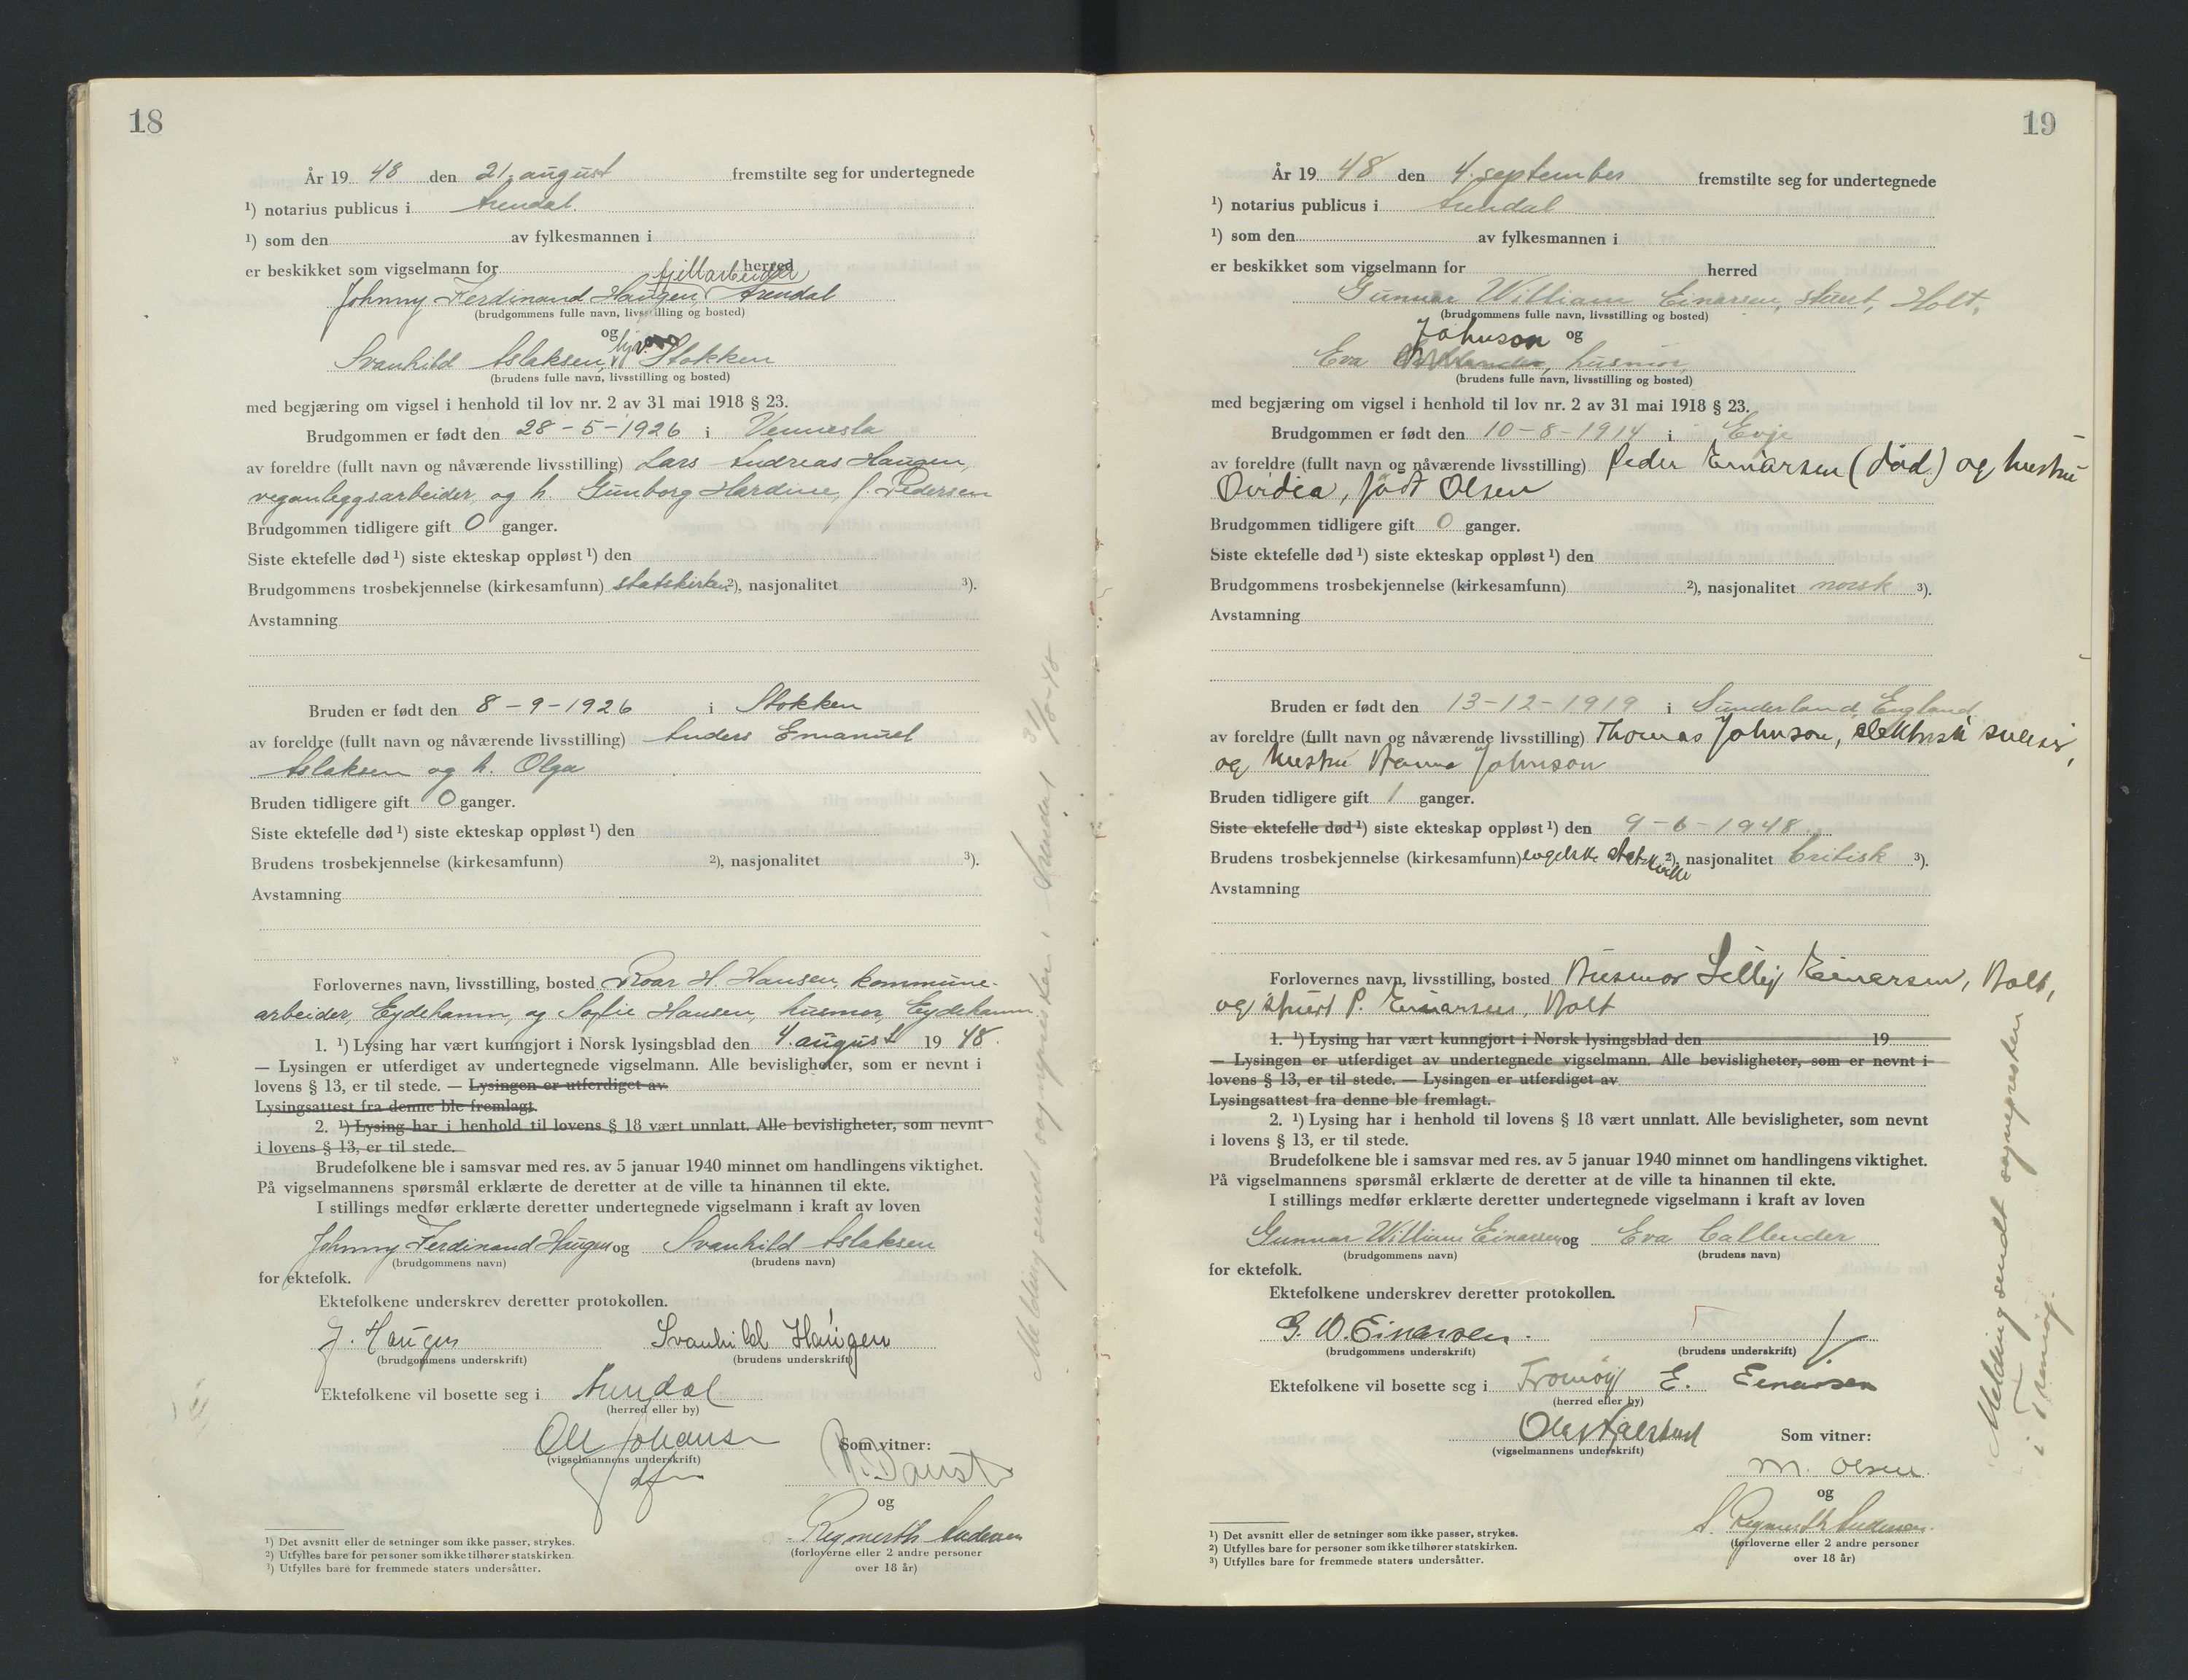 18
År 19 48 den 21. august fremstilte seg for undertegnede
¹) notarius publicus i Arendal.
¹) som den av fylkesmannen i
er beskikket som vigselmann for herred
fjellarbeider
Johnny Ferdinand Haugen, Arendal
(brudgommens fulle navn, livsstilling og bosted)
og
Svanhild Aslaksen, Stokken
(brudens fulle navn, livsstilling og bosted)
med begjæring om vigsel i henhold til lov nr. 2 av 31 mai 1918 § 23.
Brudgommen er født den 28-5-1926 i Vennesla
av foreldre (fullt navn og nåværende livsstilling) Lars Andreas Haugen,
veganleggsarbeider, og h. Gunborg Hardine, f. Pedersen
Brudgommen tidligere gift 0 ganger.
Siste ektefelle død ¹) siste ekteskap oppløst ¹) den
Brudgommens trosbekjennelse (kirkesamfunn) statskirken ²), nasjonalitet ³).
Avstamning
Bruden er født den 8-9-1926 i Stokken
av foreldre (fullt navn og nåværende livsstilling) Anders Emanuel
Aslaksen og h. Olga
Bruden tidligere gift 0 ganger.
Siste ektefelle død ¹) siste ekteskap oppløst ¹) den
Brudens trosbekjennelse (kirkesamfunn) ²), nasjonalitet ³).
Avstamning
Forlovernes navn, livsstilling, bosted Roar H. Hansen, kommune-
arbeider, Eydehamn, og Sofie Hansen, husmor, Eydehamn
1. ¹) Lysing har vært kunngjort i Norsk lysingsblad den 4. august 19 48.
— Lysingen er utferdiget av undertegnede vigselmann. Alle bevisligheter, som er nevnt i
lovens § 13, er til stede. — Lysingen er utferdiget av
Lysingsattest fra denne ble fremlagt.
2. ¹) Lysing har i henhold til lovens § 18 vært unnlatt. Alle bevisligheter, som nevnt
i lovens § 13, er til stede.
Brudefolkene ble i samsvar med res. av 5 januar 1940 minnet om handlingens viktighet.
På vigselmannens spørsmål erklærte de deretter at de ville ta hinannen til ekte.
I stillings medfør erklærte deretter undertegnede vigselmann i kraft av loven
Johnny Ferdinand Haugen og Svanhild Aslaksen
(brudgommens navn) (brudens navn)
for ektefolk.
Ektefolkene underskrev deretter protokollen.
J. Haugen Svanhild Haugen
(brudgommens underskrift) (brudens underskrift)
Ektefolkene vil bosette seg i Arendal
(herred eller by)
Som vitner:
(vigselmannens underskrift)
og
Regmorth Andersen
(forloverne eller 2 andre personer
over 18 år)
¹) Det avsnitt eller de setninger som ikke passer, strykes.
²) Utfylles bare for personer som ikke tilhører statskirken.
³) Utfylles bare for fremmede staters undersåtter.
Melding sendt sognepresten i Arendal 31/8-48
19
År 19 48 den 4. september fremstilte seg for undertegnede
¹) notarius publicus i Arendal
¹) som den av fylkesmannen i
er beskikket som vigselmann for herred
Gunnar William Einarsen, stuert, Holt,
(brudgommens fulle navn, livsstilling og bosted)
Johnson og
Eva Callender, husmor,
(brudens fulle navn, livsstilling og bosted)
med begjæring om vigsel i henhold til lov nr. 2 av 31 mai 1918 § 23.
Brudgommen er født den 10-8-1914 i Evje
av foreldre (fullt navn og nåværende livsstilling) Peder Einarsen (død) og hustru
Ovidia, født Olsen
Brudgommen tidligere gift 0 ganger.
Siste ektefelle død ¹) siste ekteskap oppløst ¹) den
Brudgommens trosbekjennelse (kirkesamfunn) ²), nasjonalitet norsk ³).
Avstamning
Bruden er født den 13-12-1919 i Sunderland, England
av foreldre (fullt navn og nåværende livsstilling) Thomas Johnson, elektrisk sveiser,
og hustru Johnson
Bruden tidligere gift 1 ganger.
Siste ektefelle død ¹) siste ekteskap oppløst ¹) den 9-6-1948
Brudens trosbekjennelse (kirkesamfunn) engelske statskirke ²), nasjonalitet britisk ³).
Avstamning
Forlovernes navn, livsstilling, bosted Husmor Lilly Einarsen, Holt,
og stuert P. Einarsen, Holt
1. ¹) Lysing har vært kunngjort i Norsk lysingsblad den 19
— Lysingen er utferdiget av undertegnede vigselmann. Alle bevisligheter, som er nevnt i
lovens § 13, er til stede. — Lysingen er utferdiget av
Lysingsattest fra denne ble fremlagt.
2. ¹) Lysing har i henhold til lovens § 18 vært unnlatt. Alle bevisligheter, som nevnt
i lovens § 13, er til stede.
Brudefolkene ble i samsvar med res. av 5 januar 1940 minnet om handlingens viktighet.
På vigselmannens spørsmål erklærte de deretter at de ville ta hinannen til ekte.
I stillings medfør erklærte deretter undertegnede vigselmann i kraft av loven
Gunnar William Einarsen og Eva Callender
(brudgommens navn) (brudens navn)
for ektefolk.
Ektefolkene underskrev deretter protokollen.
G. W. Einarsen.
(brudgommens underskrift) (brudens underskrift)
Ektefolkene vil bosette seg i Tromøy E. Einarsen
(herred eller by)
Som vitner:
(vigselmannens underskrift)
M. Olsen
og
S. Regmorth Andersen.
(forloverne eller 2 andre personer
over 18 år)
¹) Det avsnitt eller de setninger som ikke passer, strykes.
²) Utfylles bare for personer som ikke tilhører statskirken.
³) Utfylles bare for fremmede staters undersåtter.
Melding sendt sognepresten
i Tromøy.